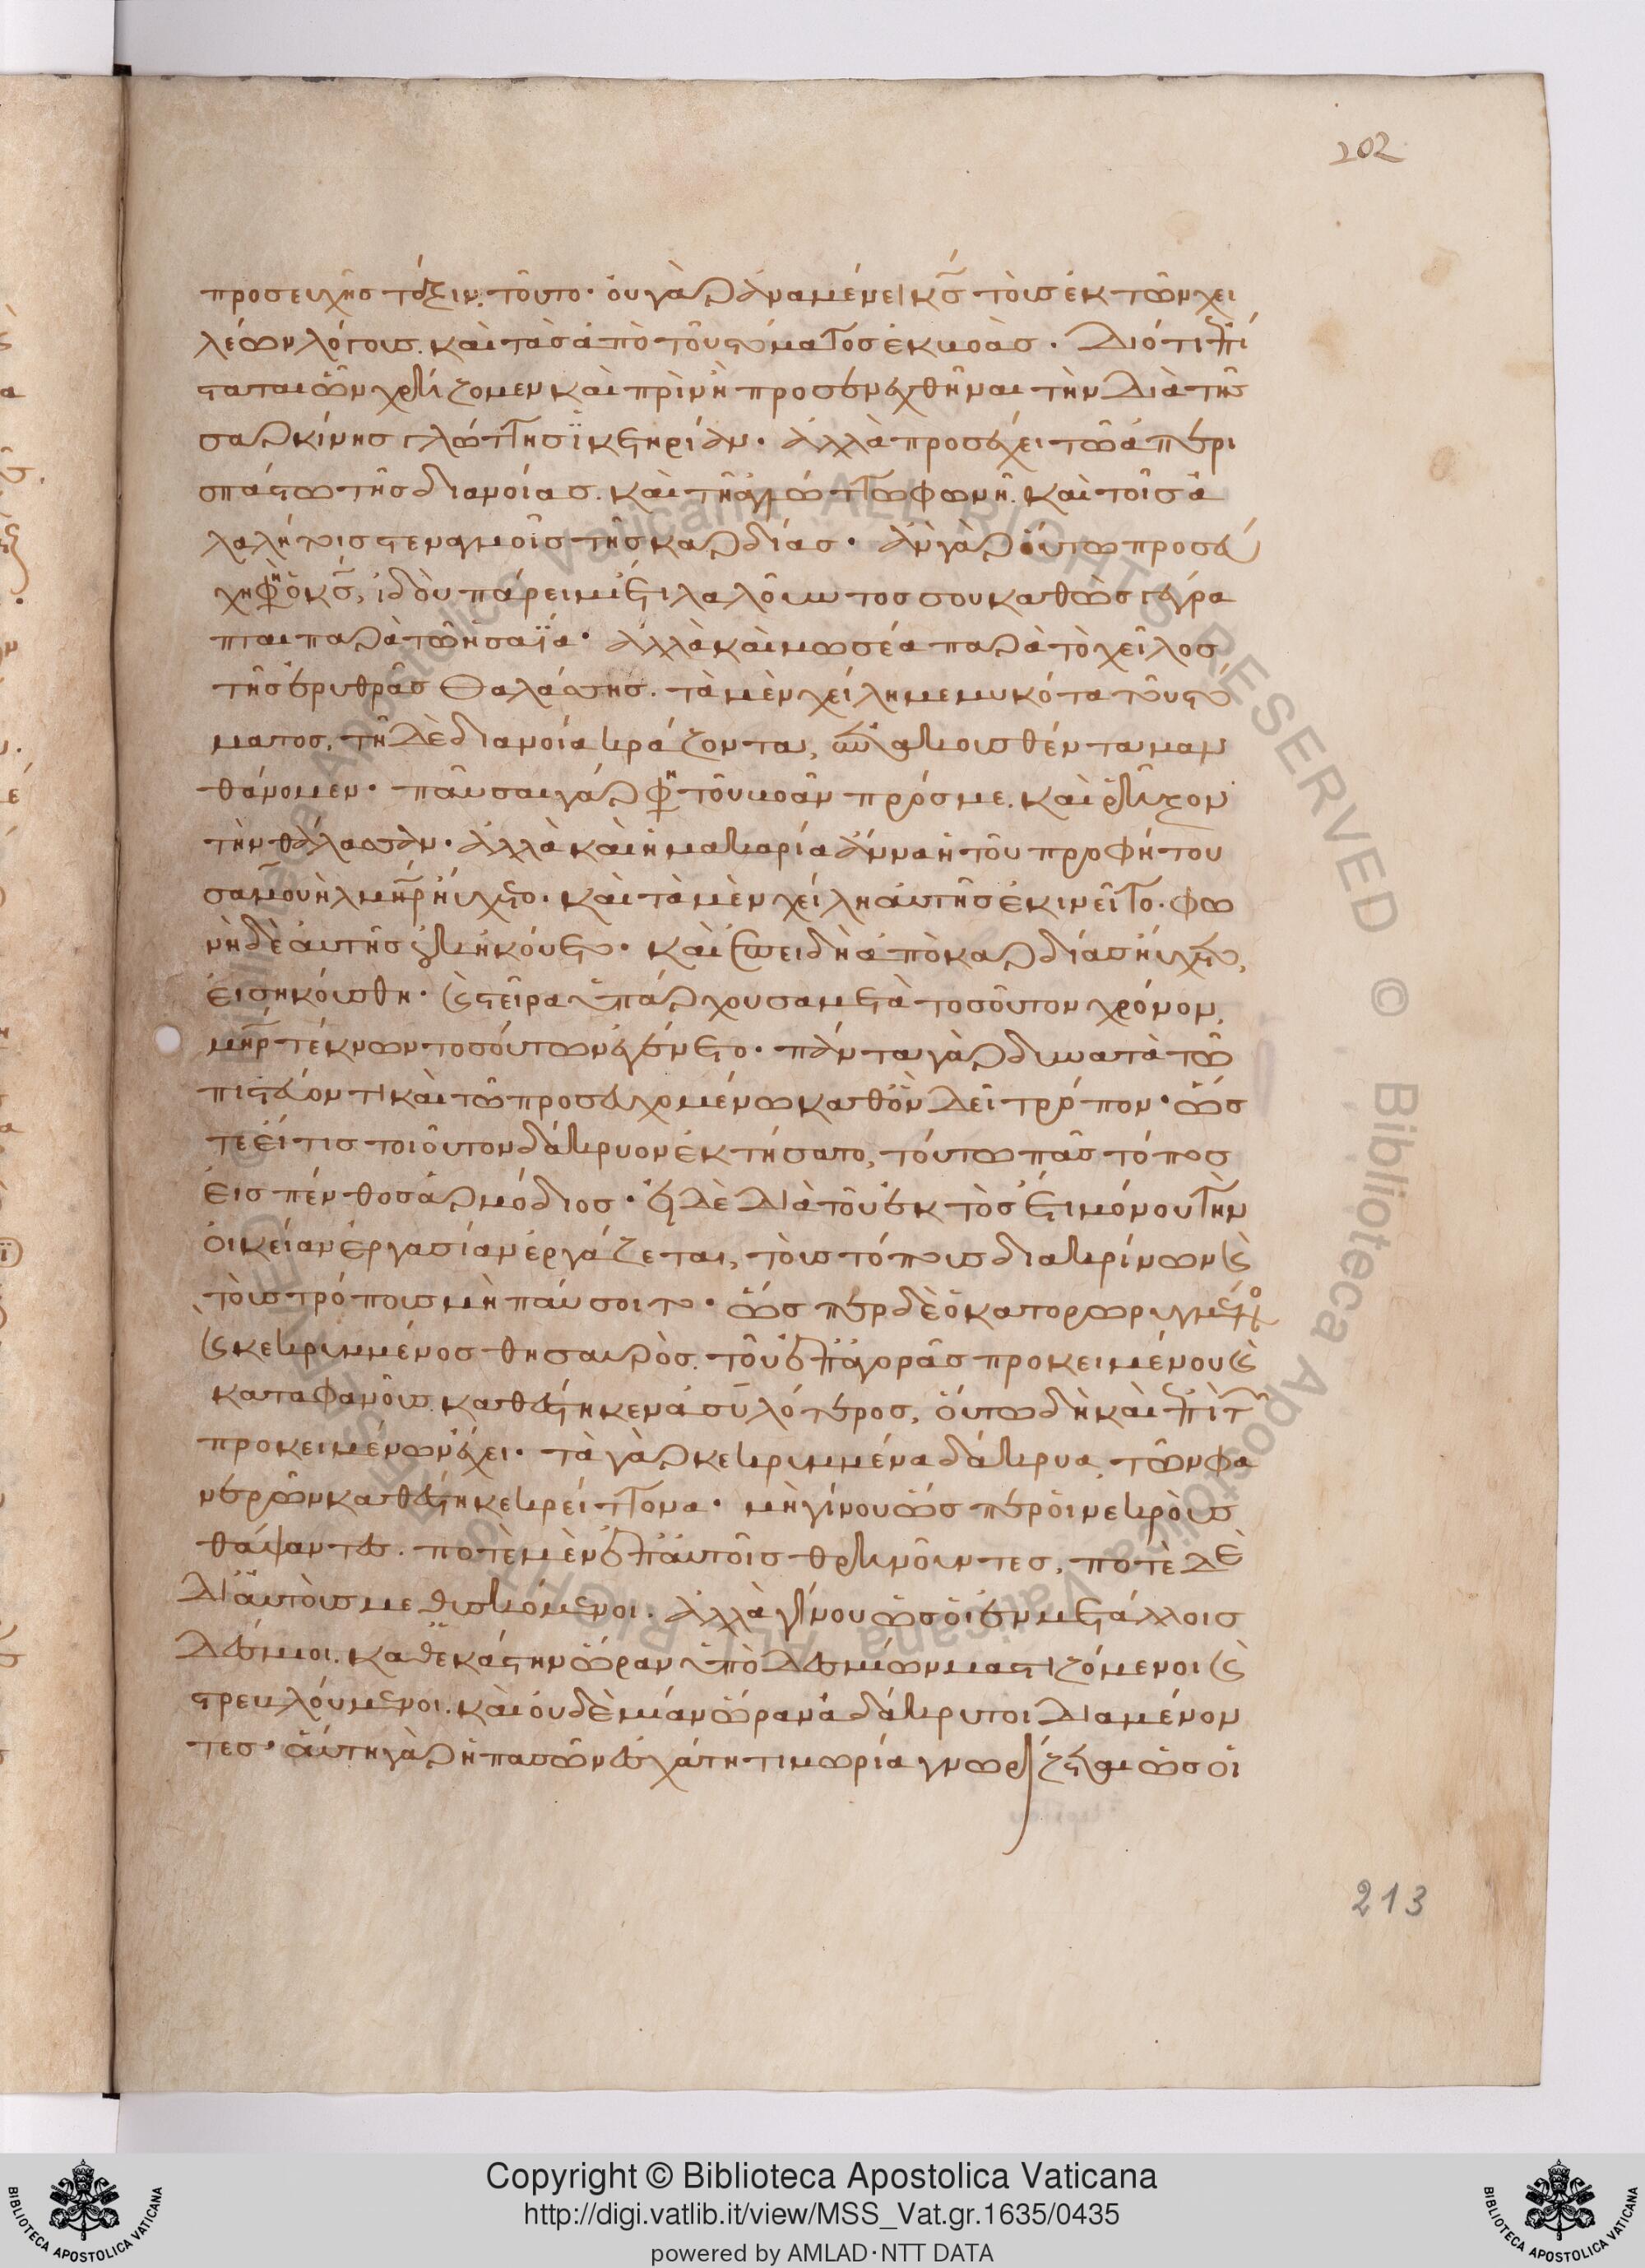 202
προσευχῆς τάξιν τοῦτο· οὐ γὰρ ἀναμένει κς τοὺς ἐκ τῶν χει
λέων λόγους. καὶ τὰς ἀπὸ τοῦ στόματος ἐκβοάς. Διότι ἐπί
σταται ὧν χρήζομεν καὶ πρὶν ἢ προσενεχθῆναι τὴν διὰ τῆς
σαρκίνης γλώττης ἱκετηρίαν. ἀλλὰ προσέχει τῶ ἀπερι
σπάστω τῆς διανοίας. καὶ τῆ ἀγνώστω φωνῆ. καὶ τοῖς ἀ
λαλήτοις στεναγμοῖς τῆς καρδίας. ἂν γὰρ οὕτω προσεύ
χη φησιν ὁ κς, ἰδοὺ πάρειμι ἔτι λαλοῦντός σου καθὼς γέγρα
πται παρὰ τῶ ἡσαΐα. ἀλλὰ καὶ μωσέα παρὰ τὸ χεῖλος
τῆς ἐρυθρᾶς θαλάσσης. τὰ μὲν χείλη μεμυκότα τοῦ στό
ματος, τῆ δὲ διανοία κράζοντα, εἰσακουσθέντα μαν
θάνομεν. παῦσαι γάρ φησι τοῦ βοᾶν πρός με. καὶ ῥῆξον
τὴν θάλασσαν. ἀλλὰ καὶ ἡ μακαρία ἄννα ἡ τοῦ προφήτου
σαμουὴλ μηρ ηὔχετο. καὶ τὰ μὲν χείλη αὐτῆς ἐκινεῖτο. φω
νὴ δὲ αὐτῆς οὐκ ἠκούετο. καὶ ἐπειδὴ ἀπὸ καρδίας ηὔχετο,
εἰσηκούσθη. καὶ στεῖρα ὑπάρχουσα μετὰ τοσοῦτον χρόνον,
μηρ τέκνων τοσούτων ἐγένετο. πάντα γὰρ δυνατὰ τῶ
πιστεύοντι καὶ τῶ προσευχομένω καθ ὃν δεῖ τρόπον. ὥσ
τε εἴ τις τοιοῦτον δάκρυον ἐκτήσατο, τούτω πᾶς τόπος
εἰς πένθος ἁρμόδιος. εἰ δὲ διὰ τοῦ ἐκτὸς ἔτι μόνου τὴν
οἰκείαν ἐργασίαν ἐργάζεται, τοὺς τόπους διακρίνων καὶ
τοὺς τρόπους μὴ παύσοιτο. ὥσπερ δὲ ὁ κατορωρυγμένος
καὶ κεκρυμμένος θησαυρὸς. τοῦ ἐπ ἀγορᾶς προκειμένου καὶ
καταφανοῦς. καθέστηκεν ἀσυλότερος, οὕτω δὴ καὶ ἐπὶ τῶν
προκειμένων ἔχει. τὰ γὰρ κεκρυμμένα δάκρυα, τῶν φα
νερῶν καθέστηκε κρείττονα. μὴ γίνου ὥσπερ οἱ νεκροὺς
θάψαντες. ποτὲ μὲν ἐπ αὐτοῖς θρηνοῦντες, ποτὲ δὲ
δι αὐτοὺς μεθυσκόμενοι. ἀλλὰ γίνου ὡς οἱ ἐν μετάλλοις
δέσμιοι. καθ ἑκάστην ὥραν ὑπὸ δεσμῶν μαστιζόμενοι καὶ
στρεβλούμενοι. καὶ οὐδὲ μίαν ὥραν ἀδάκρυτοι διαμένον
τες. αὕτη γὰρ ἡ πασῶν ἐσχάτη τιμωρία γνωρίζεται ὡς οἱ
213
Copyright © Biblioteca Apostolica Vaticana
http://digi.vatlib.it/view/MSS_Vat.gr.1635/0435
powered by AMLAD·NTT DATA